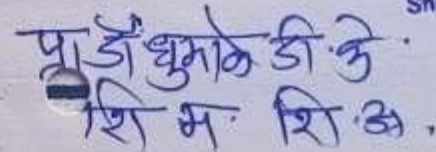 प्रा डॉ धुमाके डी. के.
शि म. शि. अ.